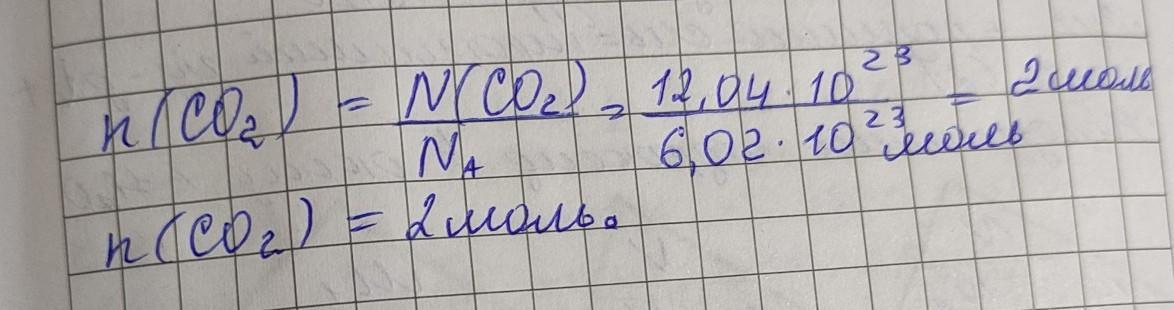 n(CO₂) = N(CO₂) / N_A = 12,04 · 10²³ / 6,02 · 10²³ моль = 2 моль
n(CO₂) = 2 моль.